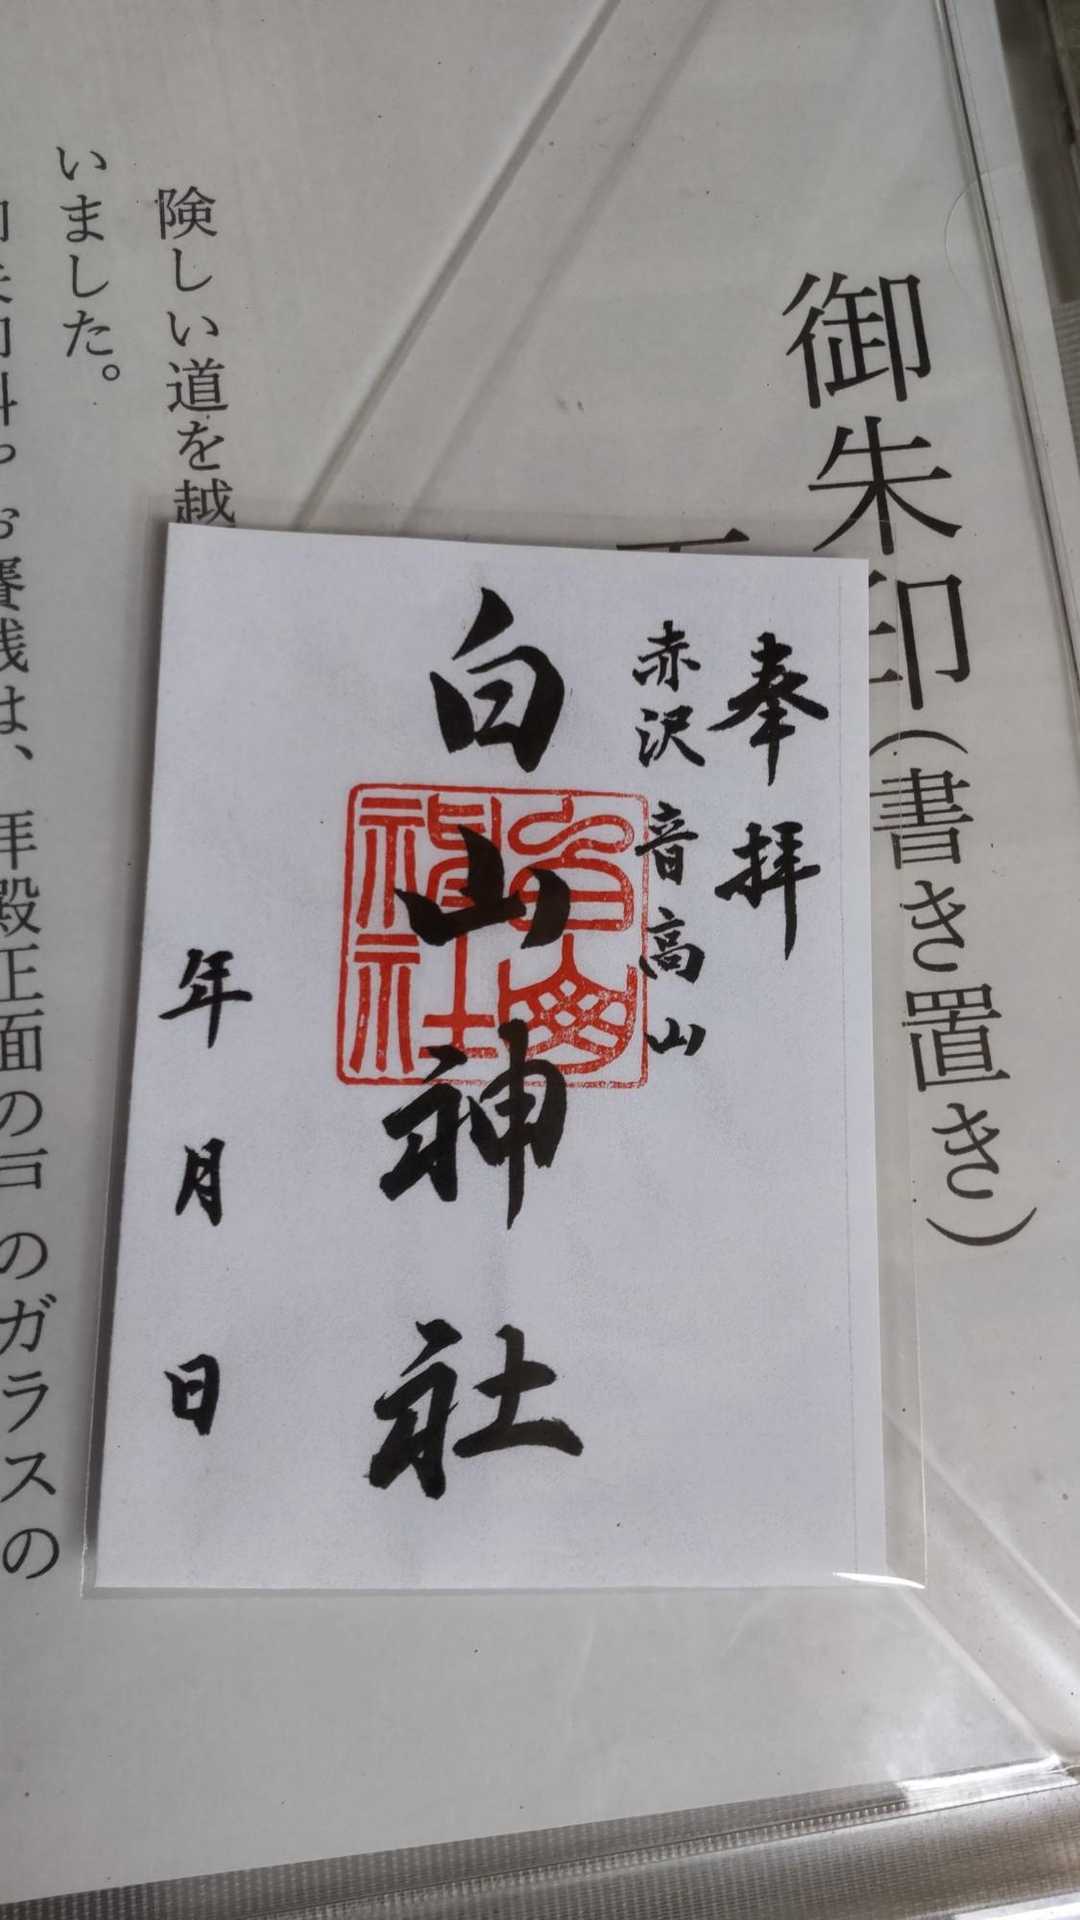 御朱印(書き置き)
険しい道を越
いました。
お賽銭は、拝殿正面の戸のガラスの
奉拝
赤沢 音高山
白山神社
年 月 日